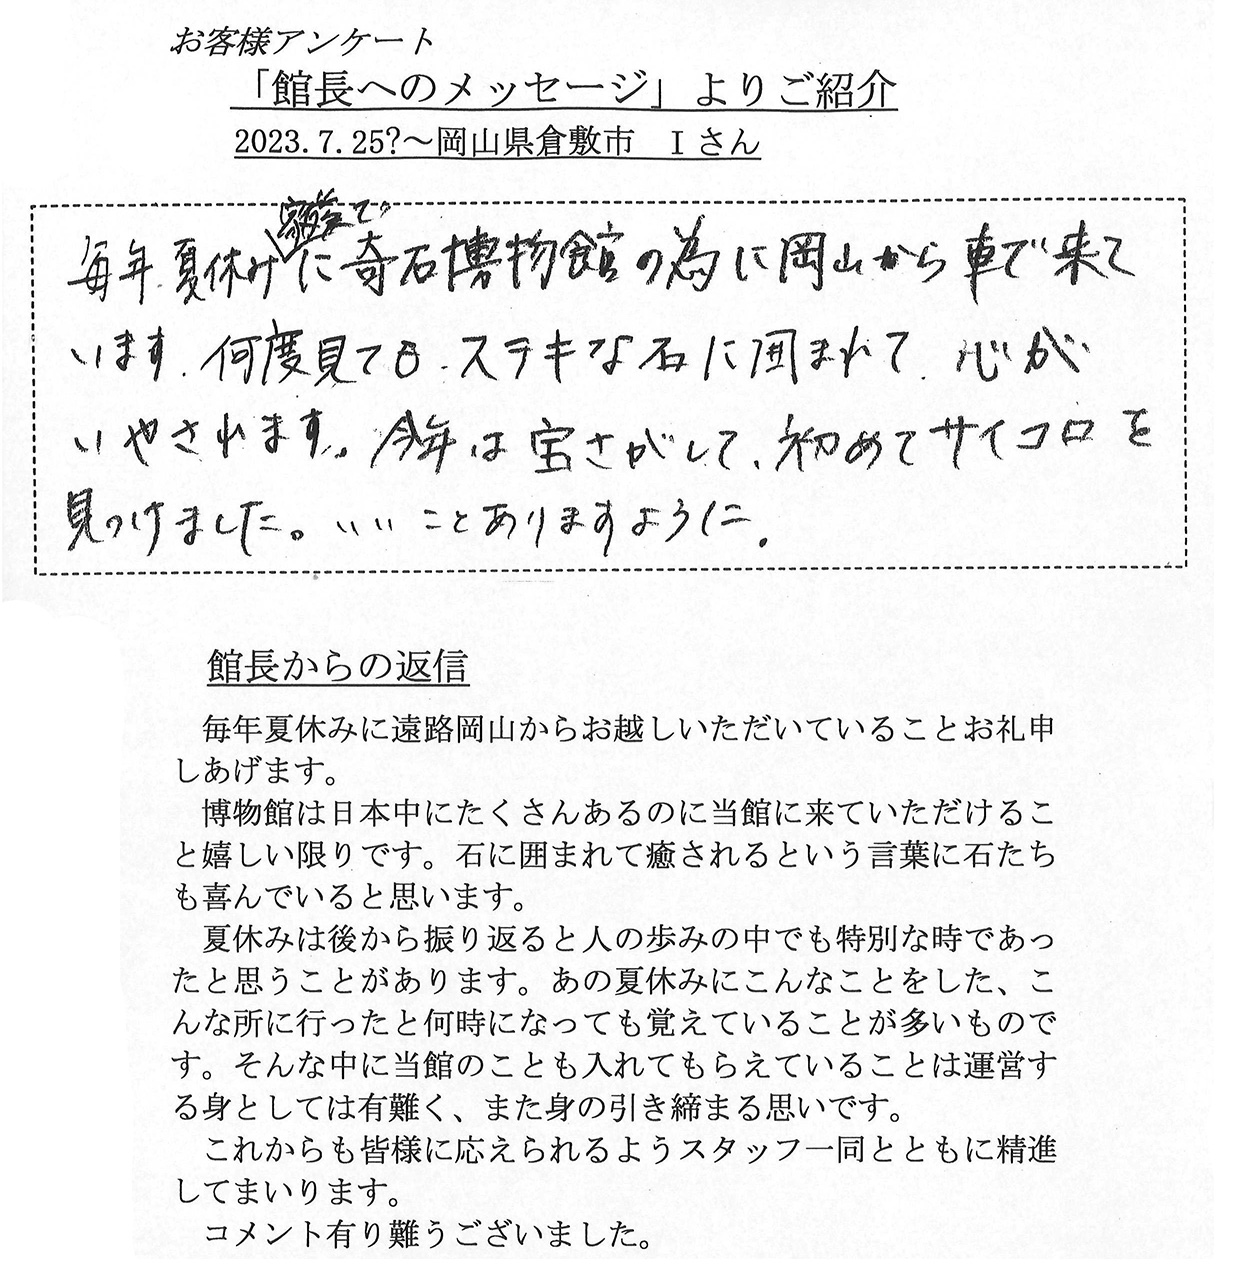 お客様アンケート
「館長へのメッセージ」よりご紹介
2023.7.25?～岡山県倉敷市　Iさん
家族全で。
毎年夏休みに奇石博物館の為に岡山から車で来て
います。何度見ても、ステキな石に囲まれて、心が
いやされます。今年は宝さがしで、初めてサイコロを
見つけました。いいことありますように。
館長からの返信
毎年夏休みに遠路岡山からお越しいただいていることお礼申
しあげます。
博物館は日本中にたくさんあるのに当館に来ていただけるこ
と嬉しい限りです。石に囲まれて癒されるという言葉に石たち
も喜んでいると思います。
夏休みは後から振り返ると人の歩みの中でも特別な時であっ
たと思うことがあります。あの夏休みにこんなことをした、こ
んな所に行ったと何時になっても覚えていることが多いもので
す。そんな中に当館のことも入れてもらえていることは運営す
る身としては有難く、また身の引き締まる思いです。
これからも皆様に応えられるようスタッフ一同とともに精進
してまいります。
コメント有り難うございました。